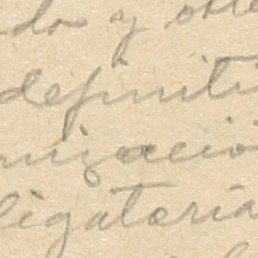 do y otro
definiti
nización
ligatoria